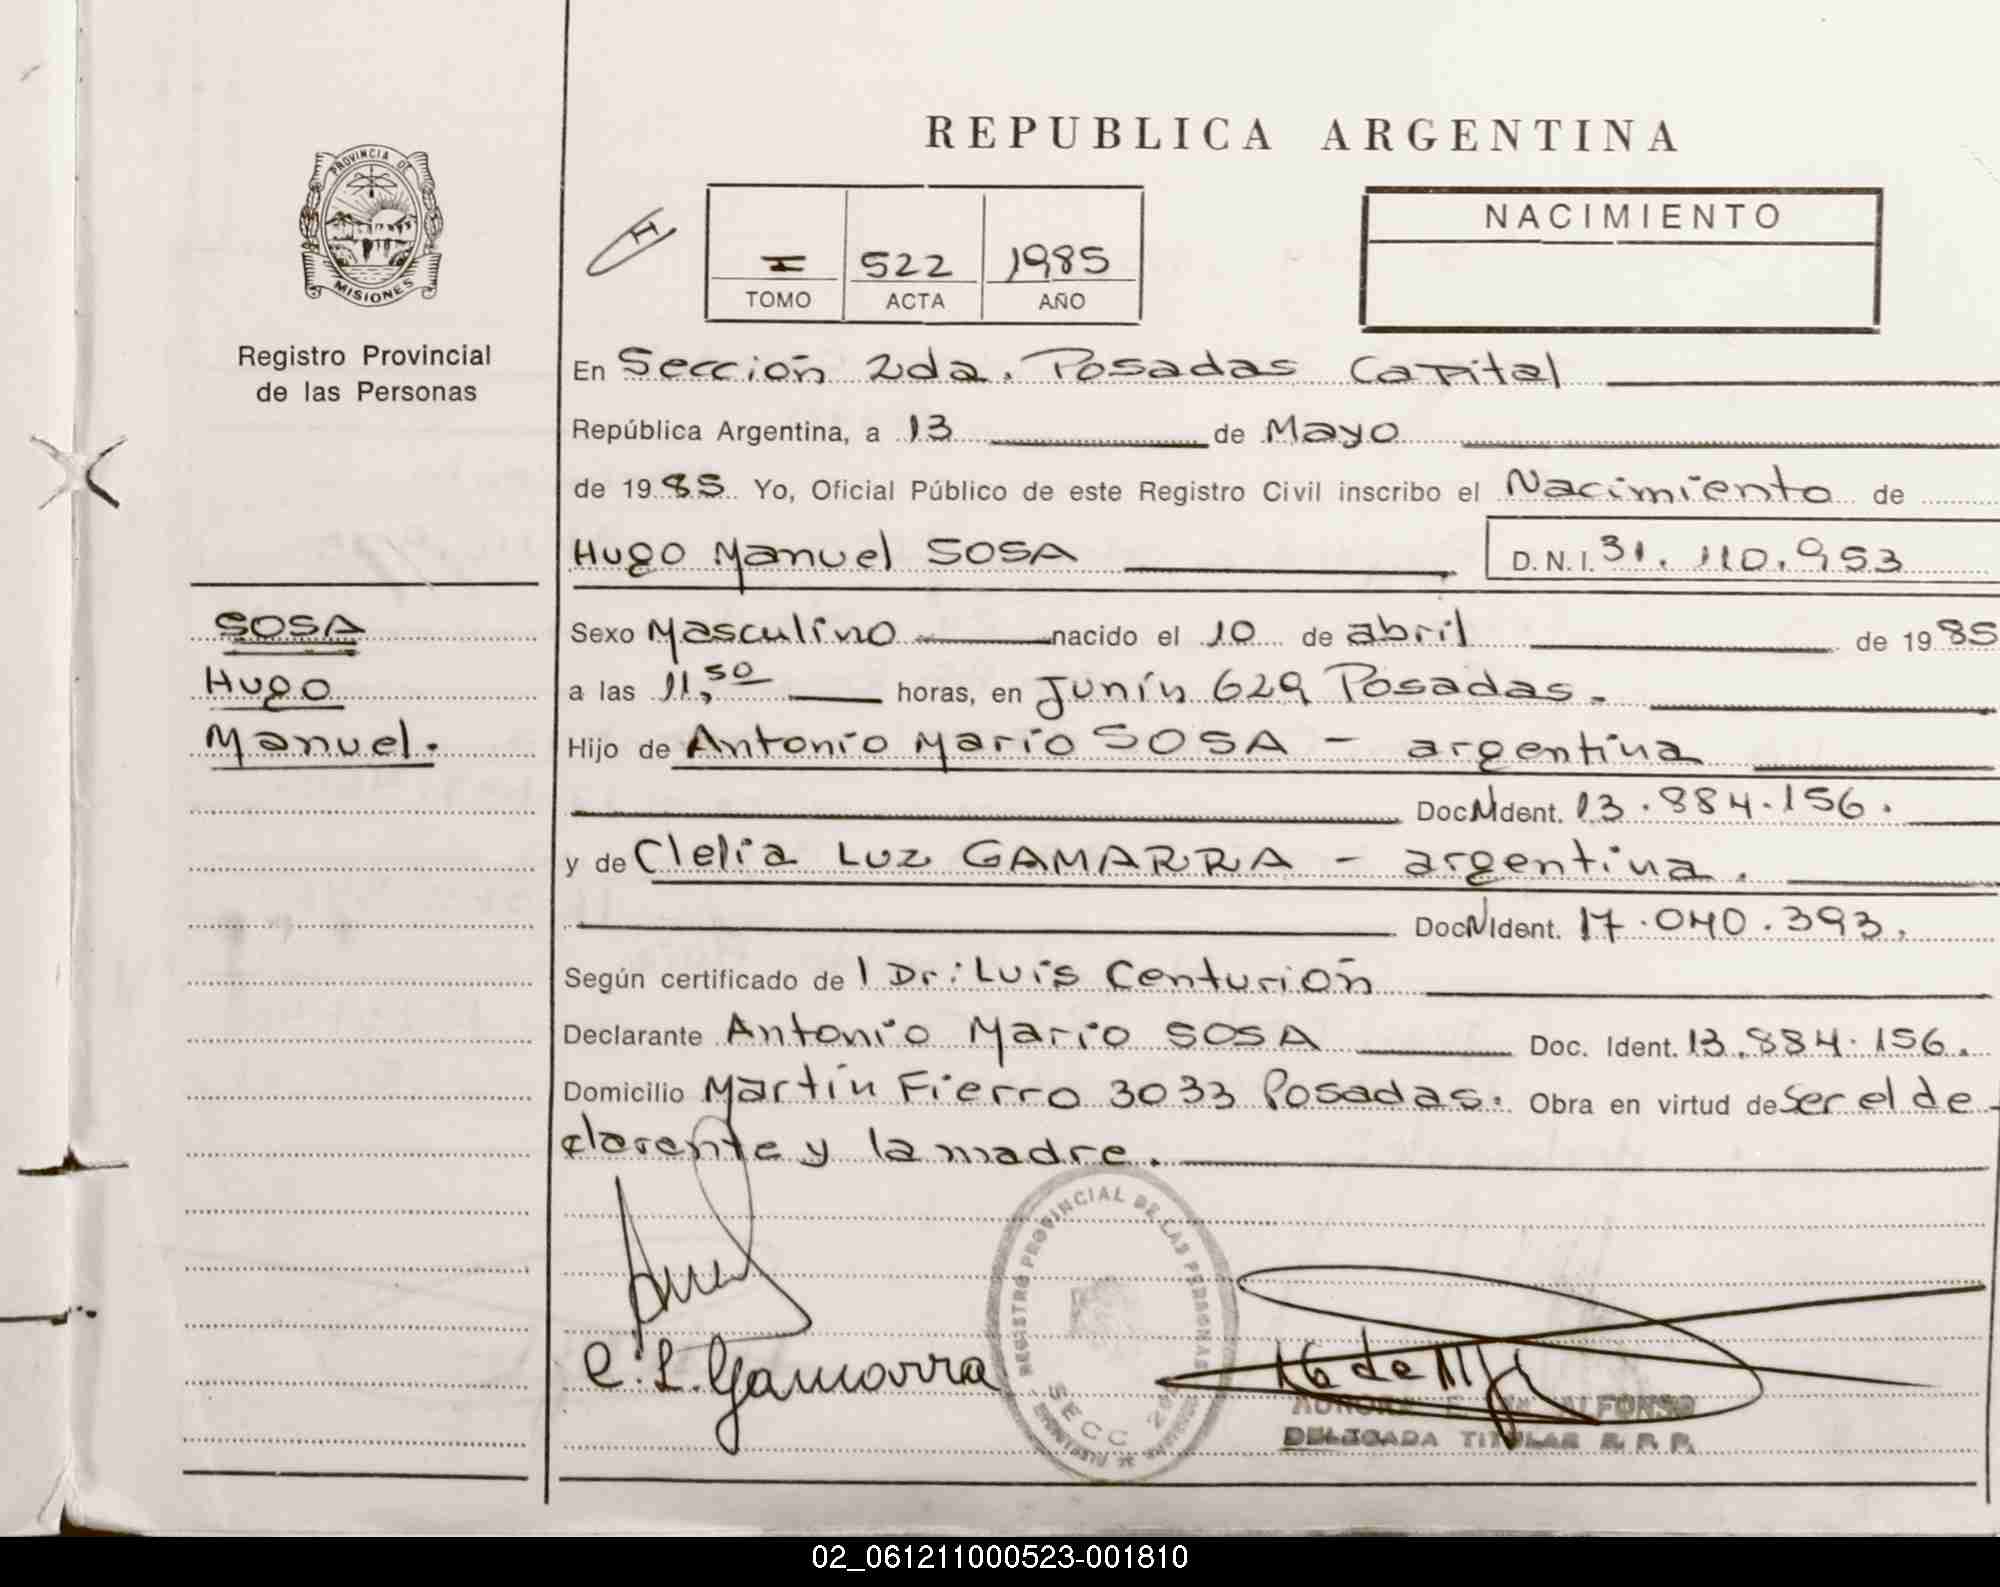 REPUBLICA ARGENTINA
PROVINCIA DE
MISIONES
Registro Provincial
de las Personas
H
I 522 1985
TOMO ACTA AÑO
NACIMIENTO
En Sección 2da. Posadas Capital
República Argentina, a 13 de Mayo
de 1985 Yo, Oficial Público de este Registro Civil inscribo el Nacimiento de
Hugo Manuel SOSA D. N. I. 31.110.953
SOSA
Hugo
Manuel.
Sexo Masculino nacido el 10 de abril de 1985
a las 11,50 horas, en Junín 629 Posadas.
Hijo de Antonio Mario SOSA - argentina
Doc N Ident. 13.884.156.
y de Clelia Luz GAMARRA - argentina.
Doc N Ident. 17.040.393.
Según certificado de l Dr: Luis Centurión
Declarante Antonio Mario SOSA Doc. Ident. 13.884.156.
Domicilio Martín Fierro 3033 Posadas. Obra en virtud de Ser el de
clarente y la madre.
REGISTRO PROVINCIAL DE LAS PERSONAS
SECC 2a
C. L. Gamarra
AURORA E. ALFONSO
DELEGADA TITULAR R. P. P.
02_061211000523-001810